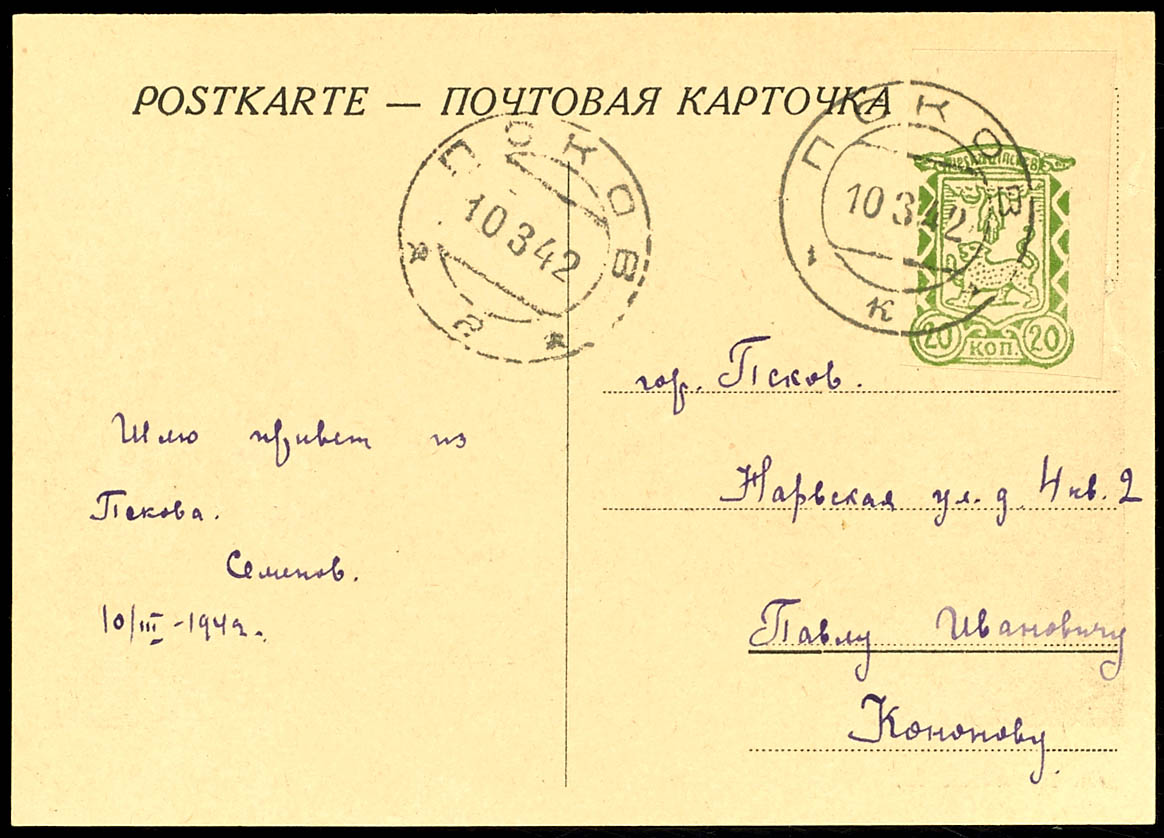 POSTKARTE — ПОЧТОВАЯ КАРТОЧКА
ПСКОВ
10 3 42
а а
ПСКОВ
10 3 42
к
20 КОП. 20
Шлю привет из
Пскова.
Семенов.
10/III-1942.
гор. Псков.
Нарвская ул. д. 4 кв. 2
Павлу Ивановичу
Кононову